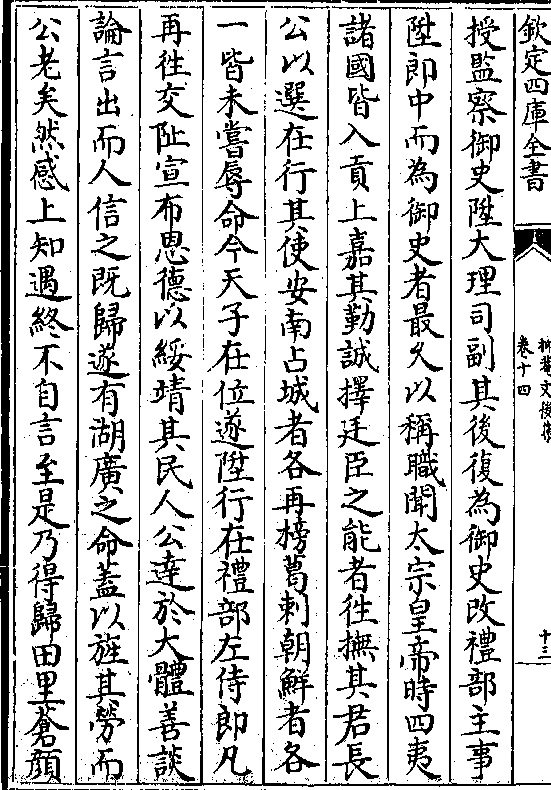 欽定四庫全書
卷十四
十三
授監察御史陞大理司副其後復為御史改禮部主事
陞郎中而為御史者最久以稱職聞太宗皇帝時四夷
諸國皆入貢上嘉其勤誠擇廷臣之能者徃撫其君長
公以選在行其使安南占城者各再榜葛剌朝鮮者各
一皆未嘗辱命今天子在位遂陞行在禮部左侍郎凡
再徃交阯宣布恩德以綏靖其民人公達於大體善談
論言出而人信之既歸遂有湖廣之命蓋以旌其勞而
公老矣然感上知遇終不自言至是乃得歸田里蒼顔